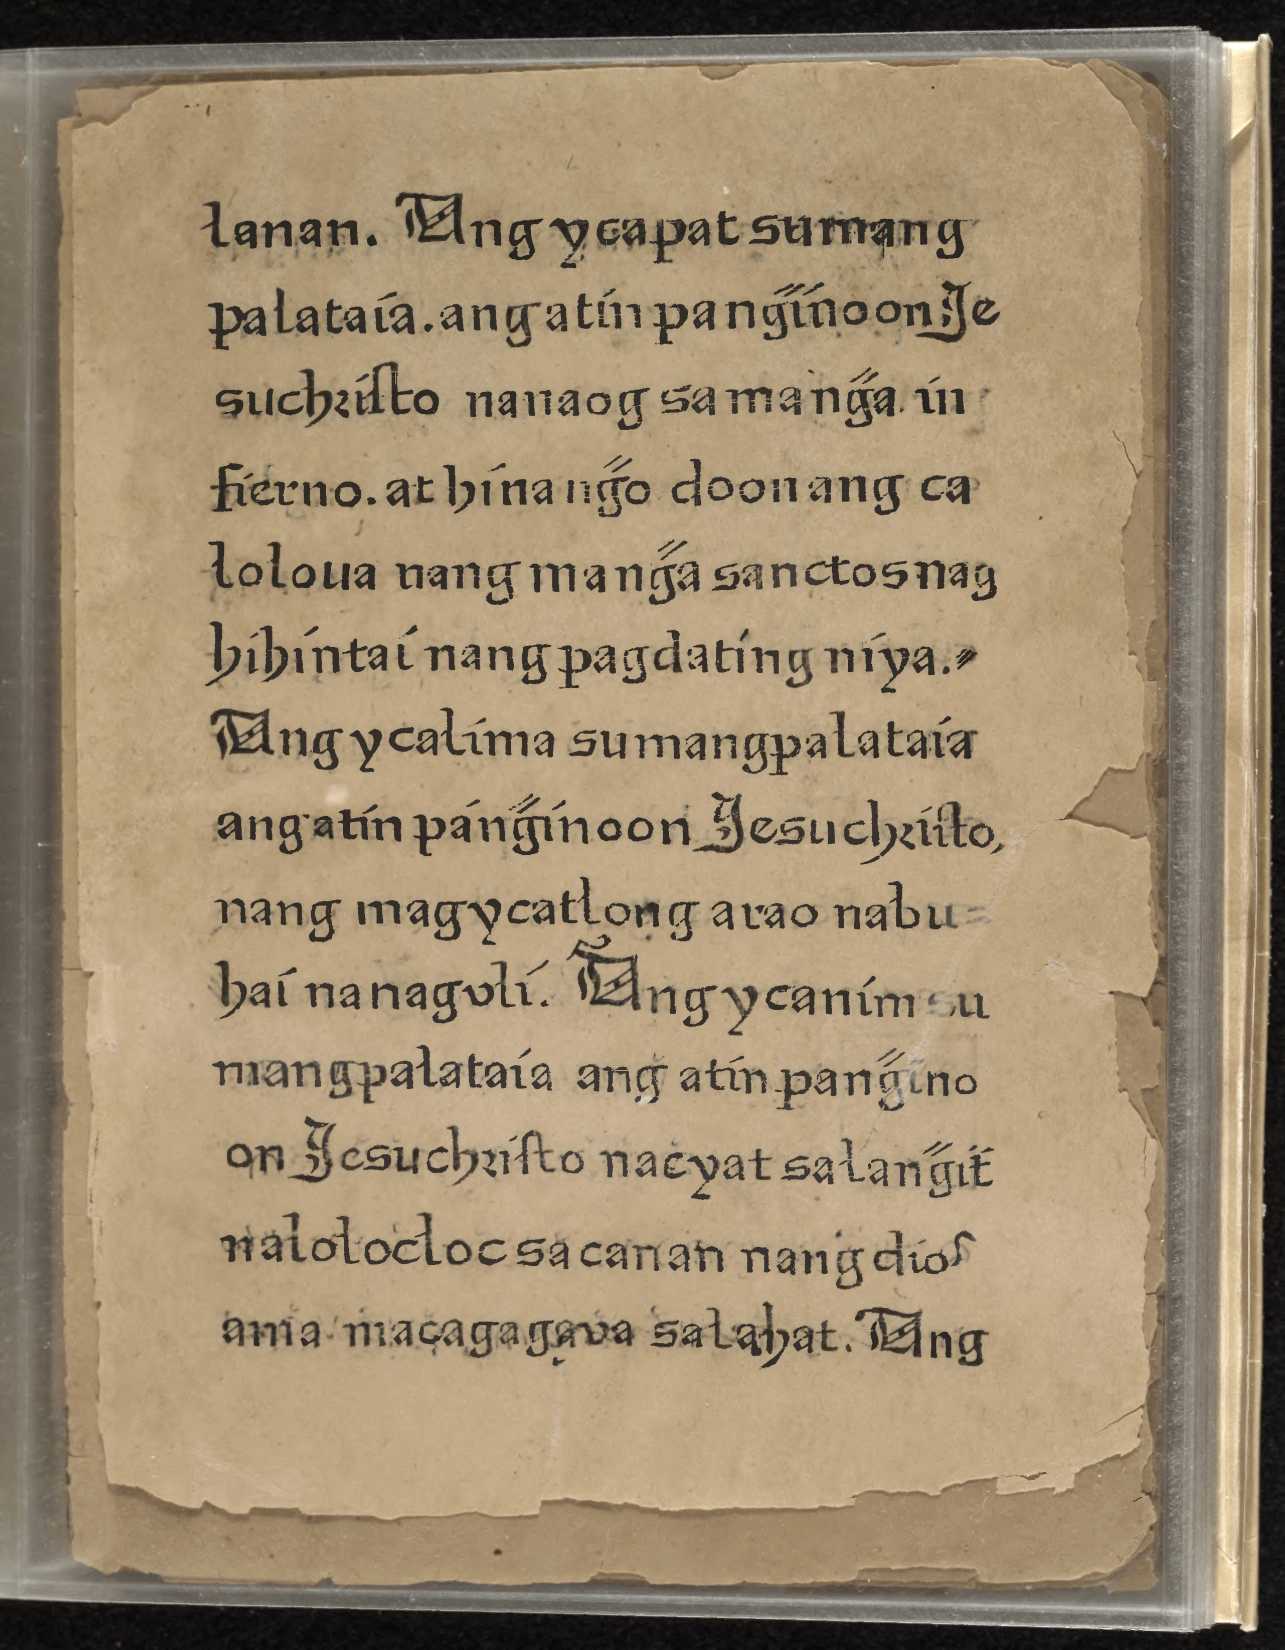 lanan. Ang ycapat sumang
palataía. ang atín pang̃ínoon Je
suchriſto nanaog sa mang̃a ín
fierno. at hínang̃o doon ang ca
loloua nang mang̃a sanctos nag
híhíntaí nang pagdatíng níya.〃
Ang ycalíma sumangpalataía
ang atín páng̃ínoon Jesuchríſto,
nang magycatlong arao nabu=
haí na naguli. Ang ycaním su
mangpalataía ang atín pang̃íno
on Jesuchríſto nacyat sa lang̃ít
nalolocloc sa canan nang díoſ
ama macagagava sa lahat. Ang